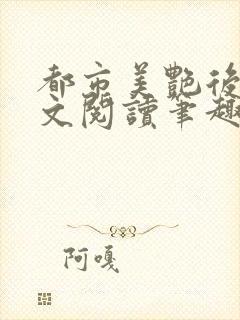 都市美艷後
文閱讀筆趣
阿嘎